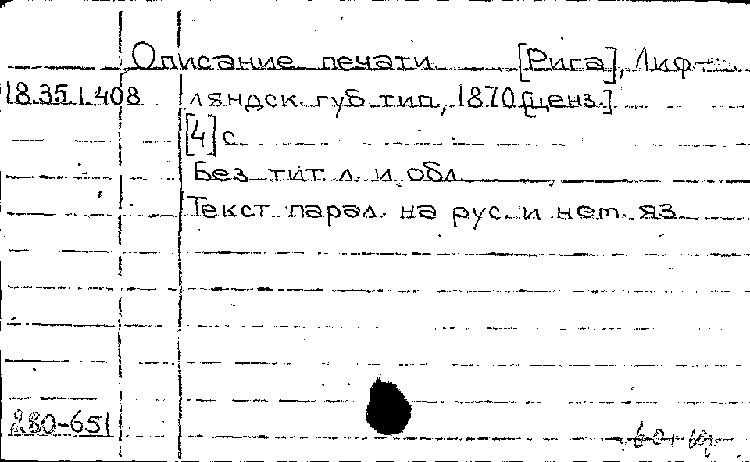 Описание печати [Рига], Лиф-
18.35.1.408 ляндск. губ. тип., 1870 [ценз.]
[4] с.
Без тит. л. и обл.
Текст парал. на рус. и нем. яз.
280-651